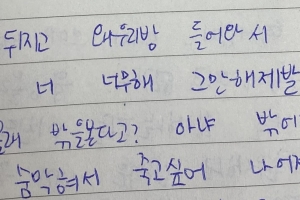 뒤지고 왜우리방 들어와서
너 너무해 그만해제발
밖을본다고? 아냐 밖에
숨막혀서 죽고싶어 나어